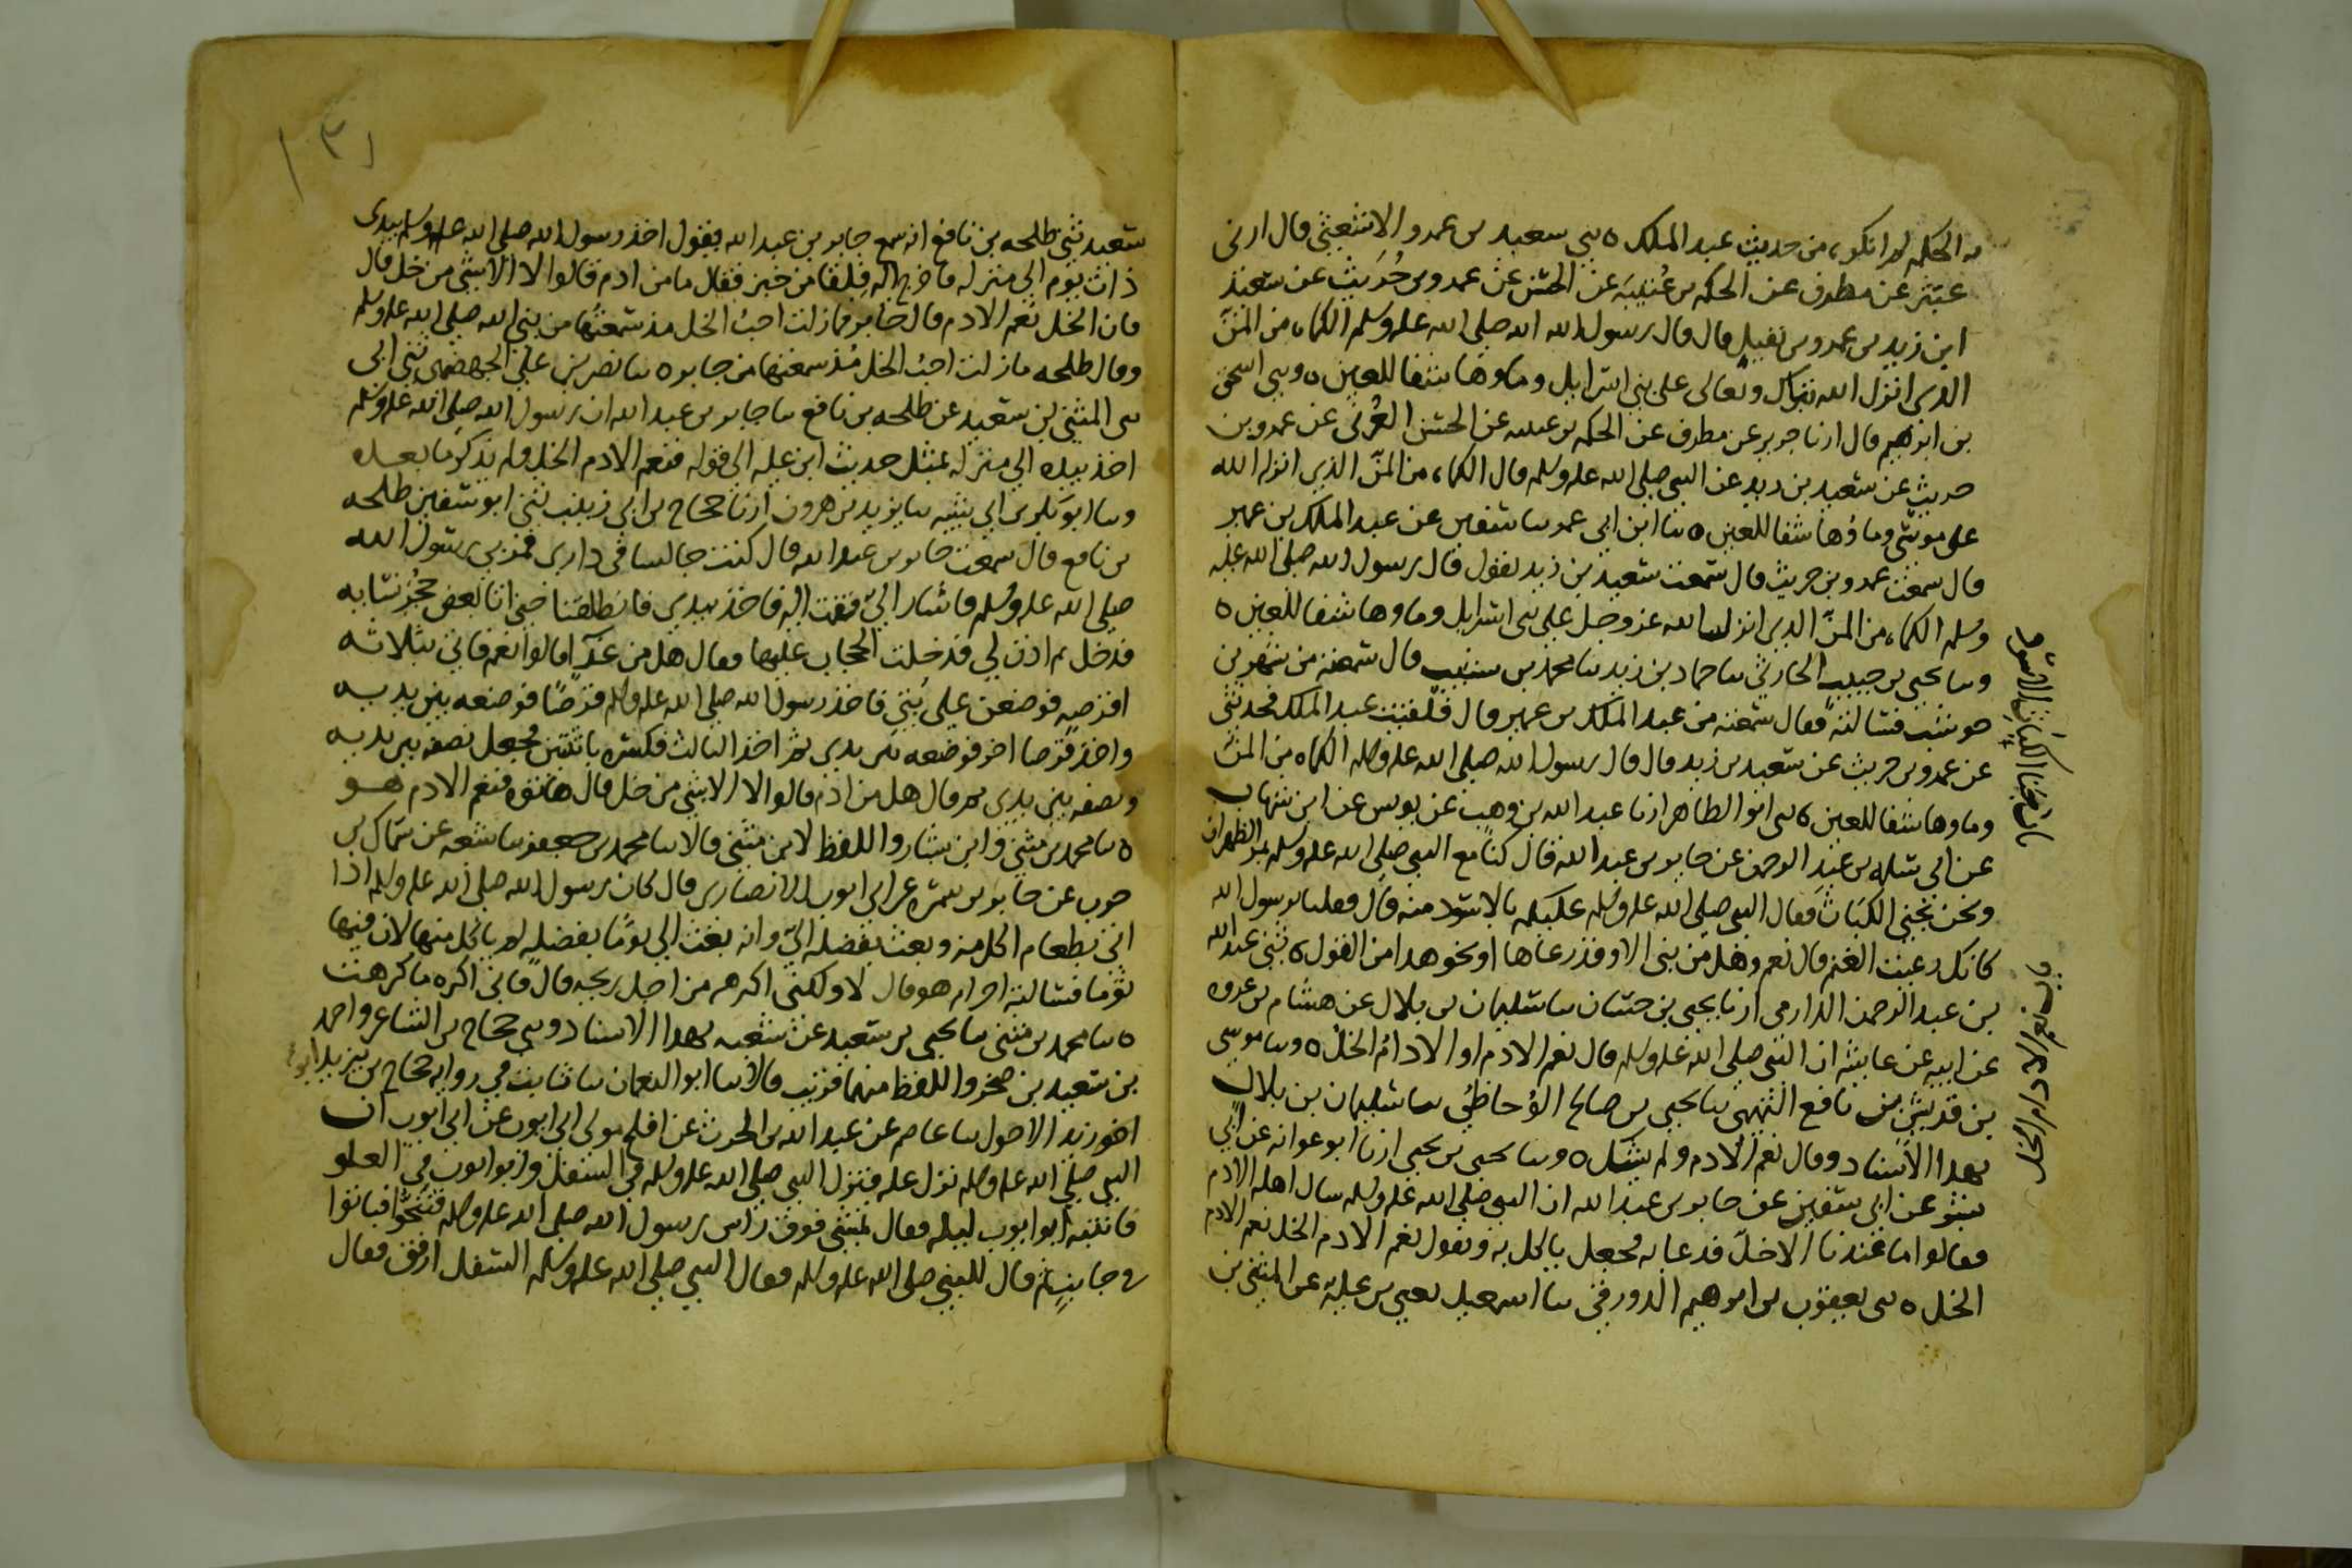 به الحكم لم انكره من حديث عبد الملك ٥ ثني سعيد بن عمرو الاشعثي قال ارنى
عبثر عن مطرف عن الحكم بن عُتيبَه عن الحسن عن عمرو بن حُرَيث عن سعيد
ابن زيد بن عمرو بن نفيل قال قال رسول الله صلى الله عليه وسلم الكماه من المنّ
الذي انزل الله تبارك وتعالى على بني اسرايل وماوها شفا للعين ٥ وثني اسحق
بن ابرهيم قال ارنا جرير عن مطرف عن الحكم بن عتيبه عن الحسن العُرني عن عمرو بن
حريث عن سعيد بن زيد عن النبي صلى الله عليه وسلم قال الكماه من المنّ الذي انزله الله
على موسى وماؤها شفا للعين ٥ ثنا ابن ابي عمر ثنا سفين عن عبد الملك بن عمير
قال سمعت عمرو بن حريث قال سمعت سعيد بن زيد يقول قال رسول الله صلى الله عليه
وسلم الكماه من المنّ الذي انزل الله عز وجل على بني اسرايل وماوها شفا للعين ٥
وثنا يحيى بن حبيب الحارثي ثنا حماد بن زيد ثنا محمد بن شبيب قال سمعته من شهر بن
حوشب فسالته فقال سمعته من عبد الملك بن عمير قال فلقيت عبد الملك فحدثني
عن عمرو بن حريث عن سعيد بن زيد قال قال رسول الله صلى الله عليه وسلم الكماه من المنّ
وماوها شفا للعين ٥ ثني ابو الطاهر ارنا عبد الله بن وهب عن يونس عن ابن شهاب
عن ابي سلمه بن عبد الرحمن عن جابر بن عبد الله قال كنا مع النبي صلى الله عليه وسلم بمر الظهران
ونحن نجني الكبَاثَ فقال النبي صلى الله عليه وسلم عليكم بالاسود منه قال فقلنا يرسول الله
كانك رعيت الغنم قال نعم وهل من نبي الا وقد رعاها او نحو هذا من القول ٥ ثني عبد الله
بن عبد الرحمن الدارمي ارنا يحيى بن حسّان ثنا سليمان بن بلال عن هشام بن عروه
عن ابيه عن عايشه ان النبي صلى الله عليه وسلم قال نعم الادم او الادامُ الخلُّ ٥ وثنا موسى
بن قريش بن نافع التميمي ثنا يحيى بن صالح الوُحاظِيُ ثنا سليمان بن بلال
بهذا الاسناد وقال نعم الادم ولم يشك ٥ وثنا يحيى بن يحيى ارنا ابو عوانه عن ابي
بشر عن ابي سفين عن جابر بن عبد الله ان النبي صلى الله عليه وسلم سال اهله الادم
فقالوا ما عندنا الا خلّ فدعا به فجعل ياكل به ويقول نعم الادم الخل نعم الادم
الخل ٥ ثني يعقوب بن ابرهيم الدورقي ثنا اسمعيل يعني بن عليه عن المثنى بن
باب نعم الادام الخل
١٣١
سعيد ثني طلحه بن نافع انه سمع جابر بن عبد الله يقول اخذ رسول الله صلى الله عليه وسلم بيدي
ذات يوم الى منزله فاخرج اليه فِلَقًا من خبز فقال ما من ادم قالوا لا الا شي من خل قال
فان الخل نعم الادم قال جابر فما زلت احبُ الخل مذ سمعتها من نبي الله صلى الله عليه وسلم
وقال طلحه ما زلت احبُ الخل مُذ سمعتها من جابر ٥ ثنا نصر بن علي الجهضمي ثني ابي
ثني المثنى بن سعيد عن طلحه بن نافع ثنا جابر بن عبد الله ان رسول الله صلى الله عليه وسلم
اخذ بيده الى منزله بمثل حديث ابن عليه الى قوله فنعم الادم الخل ولم يذكر ما بعده
وثنا ابو بكر بن ابي شيبه ثنا يزيد بن هرون ارنا حجاج بن ابي زينب ثني ابو سفين طلحه
بن نافع قال سمعت جابر بن عبد الله قال كنت جالسا في داري فمر بي رسول الله
صلى الله عليه وسلم فاشار اليّ فقمت اليه فاخذ بيدي فانطلقنا حتى اتا بعض حُجَر نسايه
فدخل ثم اذن لي فدخلت الحجاب عليها فقال هل من غدآ قالوا نعم فاتي بثلاثه
اقرصه فوضعن على بُتي فاخذ رسول الله صلى الله عليه وسلم قرصًا فوضعه بين يديه
واخذ قرصا اخر فوضعه بين يدي ثم اخذ الثالث فكسره باثنين فجعل نصفه بين يديه
ونصفه بين يدي ثم قال هل من ادم قالوا لا الا شي من خل قال هاتوه فنعم الادم هو
٥ ثنا محمد بن مثنى وابن بشار واللفظ لابن مثنى قالا ثنا محمد بن جعفر ثنا شعبه عن سماك بن
حرب عن جابر بن سمره عن ابي ايوب الانصاري قال كان رسول الله صلى الله عليه وسلم اذا
اتى بطعام اكل منه وبعث بفضله اليّ وانه بعث الي يومًا بفضله لم ياكل منها لان فيها
ثومًا فسالته احرام هو قال لا ولكني اكرهه من اجل ريحه قال فاني اكره ما كرهت
٥ ثنا محمد بن مثنى ثنا يحيى بن سعيد عن شعبه بهذا الاسناد وثني حجاج بن الشاعر واحمد
بن سعيد بن صخر واللفظ منهما قريب قالا ثنا ابو النعمان ثنا ثابت في روايه حجاج بن يزيد ابو
اخو زيد الاحول ثنا عاصم عن عبد الله بن الحرث عن افلح مولى ابي ايوب عن ابي ايوب ان
النبي صلى الله عليه وسلم نزل عليه فنزل النبي صلى الله عليه وسلم في السفل وابو ايوب في العلو
فانتبه ابو ايوب ليله فقال نمشي فوق راس رسول الله صلى الله عليه وسلم فتنحوا فباتوا
في جانب ثم قال للنبي صلى الله عليه وسلم فقال النبي صلى الله عليه وسلم السفل ارفق فقال